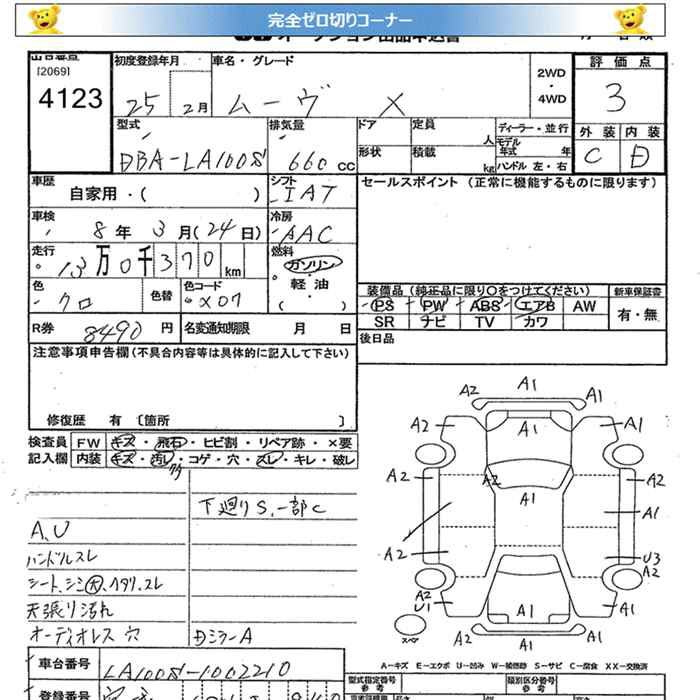 完全ゼロ切りコーナー
[2069]
4123
初度登録年月
25
2月
車名・グレード
ムーヴ X
2WD
・
4WD
評価点
3
外装 内装
C D
型式
DBA-LA100S
排気量
660 cc
ドア 定員
人
形状 積載
kg
ディーラー・並行
モデル年式 年
ハンドル 左・右
車歴
自家用・( )
シフト
IAT
セールスポイント (正常に機能するものに限ります)
車検
8年 3月(24日)
冷房
AAC
走行
13万0千370km
燃料
ガソリン
・
軽油
・
( )
色
クロ
色替
色コード
X07
装備品 (純正品に限り〇をつけてください)
PS PW ABS エアB AW
SR ナビ TV カワ
新車保証書
有・無
R券 8490円
名変通知期限 月 日
後日品
注意事項申告欄(不具合内容等は具体的に記入して下さい)
修復歴 有 〔箇所 〕
検査員
記入欄
FW キズ・飛石・ヒビ割・リペア跡・×要
内装 キズ・汚レ・コゲ・穴・スレ・キレ・破レ
下廻りS、一部C
A,U
ハンドルスレ
シート、シミ大、ヘタリ、スレ
天張り汚れ
オーディオレス 穴
DミラーA
A2 A1 A1
A2 A1 A1
A2 A2 A2
A1 A1
A2 U3
A2
A2
U1 A1 A1
A2 A1 A1
スペア
A－キズ E－エクボ U－凹み W－補修跡 S－サビ C－腐食 XX－交換済
車台番号
LA100S-1002210
型式指定番号
参考
類別区分番号
参考
登録番号